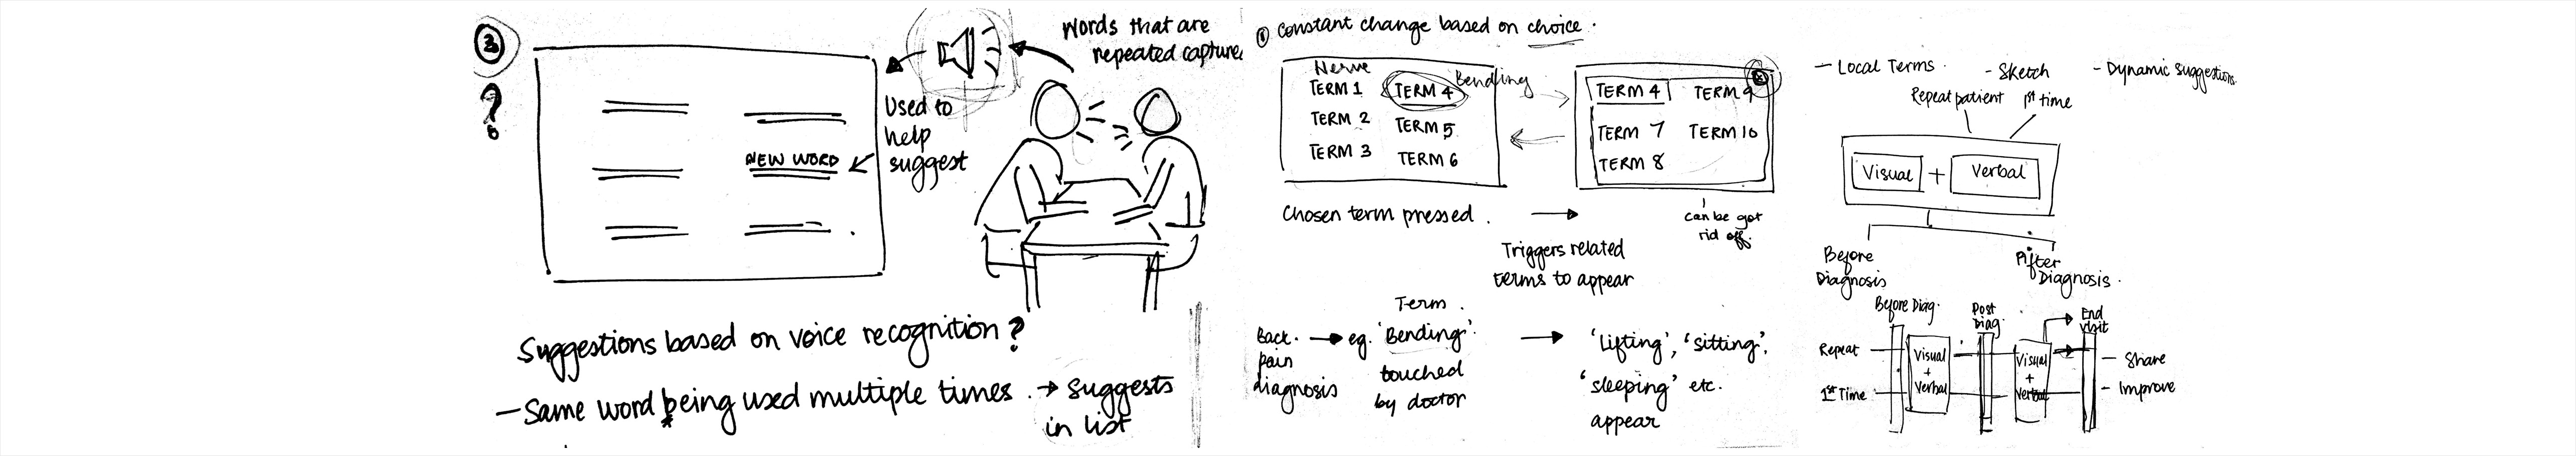 3
?
Words that are
repeated capture
Used to
help
suggest
NEW WORD
Suggestions based on voice recognition?
- Same word being used multiple times. → suggests
in list
① Constant change based on choice.
Nerve
TERM 1
TERM 2
TERM 3
TERM 4
TERM 5
TERM 6
Bending
TERM 4
TERM 7
TERM 8
TERM 9
TERM 10
x
Chosen term pressed. →
Triggers related
terms to appear
can be got
rid off.
Back
pain
diagnosis
→ eg.
Term
'Bending'
touched
by doctor
→
'Lifting', 'sitting',
'sleeping' etc.
appear
- Local Terms.
- Sketch
- Dynamic suggestions
Repeat patient
1st time
Visual + Verbal
Before
Diagnosis
After
Diagnosis.
Before Diag.
Post
Diag.
End
visit
Repeat
1st Time
Visual
+
Verbal
Visual
+
Verbal
- Share
- Improve